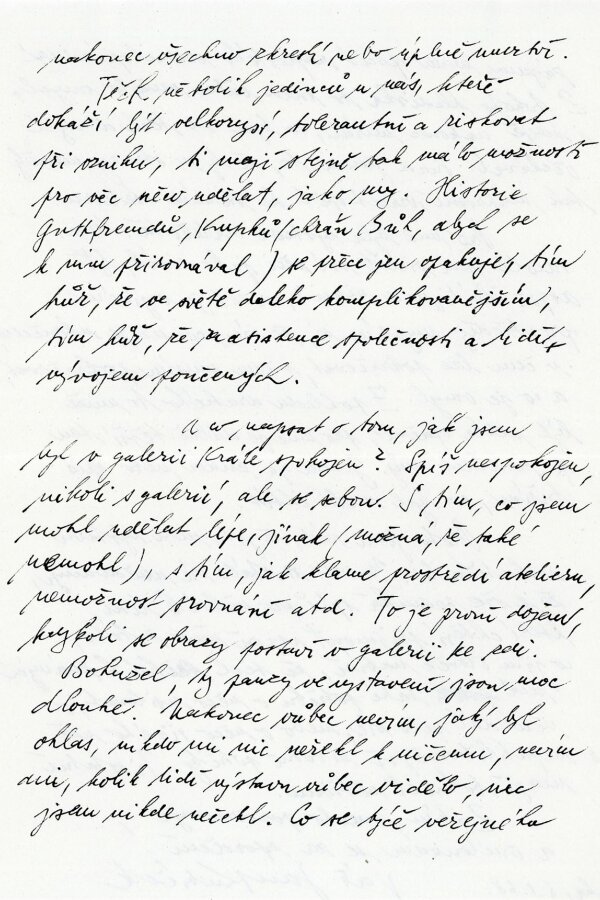 nakonec všechno zkreslí nebo úplně umrtví.
Těch několik jedinců u nás, kteří
dokáží být velkorysí, tolerantní a riskovat
při vzniku, ti mají stejně tak málo možností
pro věc něco udělat, jako my. Historie
Gutfreundů, Kupků (chraň Bůh, abych se
k nim přirovnával) se přece jen opakuje, tím
hůř, že ve světě daleko komplikovanějším,
tím hůř, že za existence společnosti a lidí,
vývojem poučených.
A co napsat o tom, jak jsem
byl v galerii Krále spokojen? Spíš nespokojen,
nikoli s galerií, ale se sebou. S tím, co jsem
mohl udělat lépe, jinak (možná, že také
nemohl), s tím, jak klame prostředí atelieru,
nemožnost srovnání atd. To je první dojem,
kdykoli se obrazy postaví v galerii ke zdi.
Bohužel, ty pauzy ve vystavení jsou moc
dlouhé. Nakonec vůbec nevím, jaký byl
ohlas, nikdo mi nic neřekl k ničemu, nevím
ani, kolik lidí výstavu vůbec vidělo, nic
jsem nikde nečetl. Co se týče veřejného